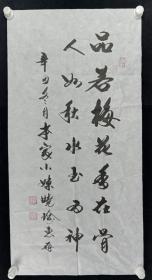 品若梅花香在骨
人如秋水玉为神
辛丑冬月李家小妹晓玲惠存